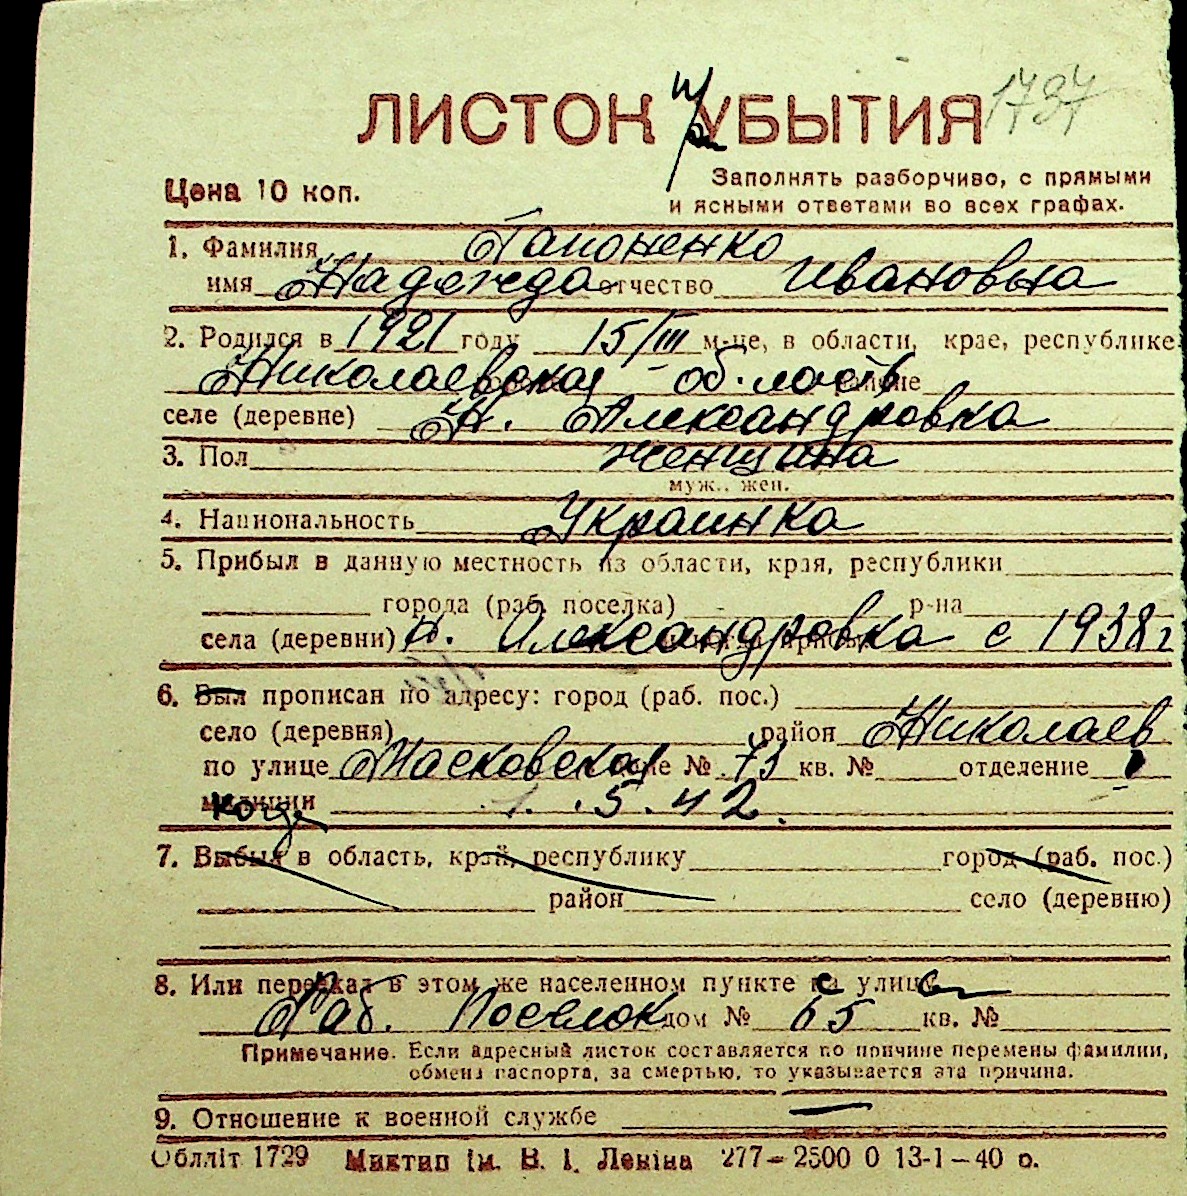 ЛИСТОК УБЫТИЯ 1797
Цена 10 коп.
Заполнять разборчиво, с прямыми
и ясными ответами во всех графах.
1. Фамилия Гапоненко
имя Надежда отчество Ивановна
2. Родился в 1921 году 15/III м-це, в области, крае, республике
Николаевская область
селе (деревне) Н. Александровка
3. Пол женщина
муж.. жен.
4. Национальность Украинка
5. Прибыл в данную местность из области, края, республики
города (раб. поселка) р-на
села (деревни) Н. Александровка с 1938 г
6. Был прописан по адресу: город (раб. пос.)
село (деревня) район Николаев
по улице Масковская № 73 кв. № отделение
милиции когда 1.5.42.
7. Выбыл в область, край, республику город (раб. пос.)
район село (деревню)
8. Или переехал в этом же населенном пункте с улицы
Раб. Поселок дом № 65 кв. №
Примечание. Если адресный листок составляется по причине перемены фамилии,
обмена паспорта, за смертью, то указывается эта причина.
9. Отношение к военной службе —
Облліт 1729 Миктип ім. В. І. Леніна 277–2500 0 13-1–40 р.